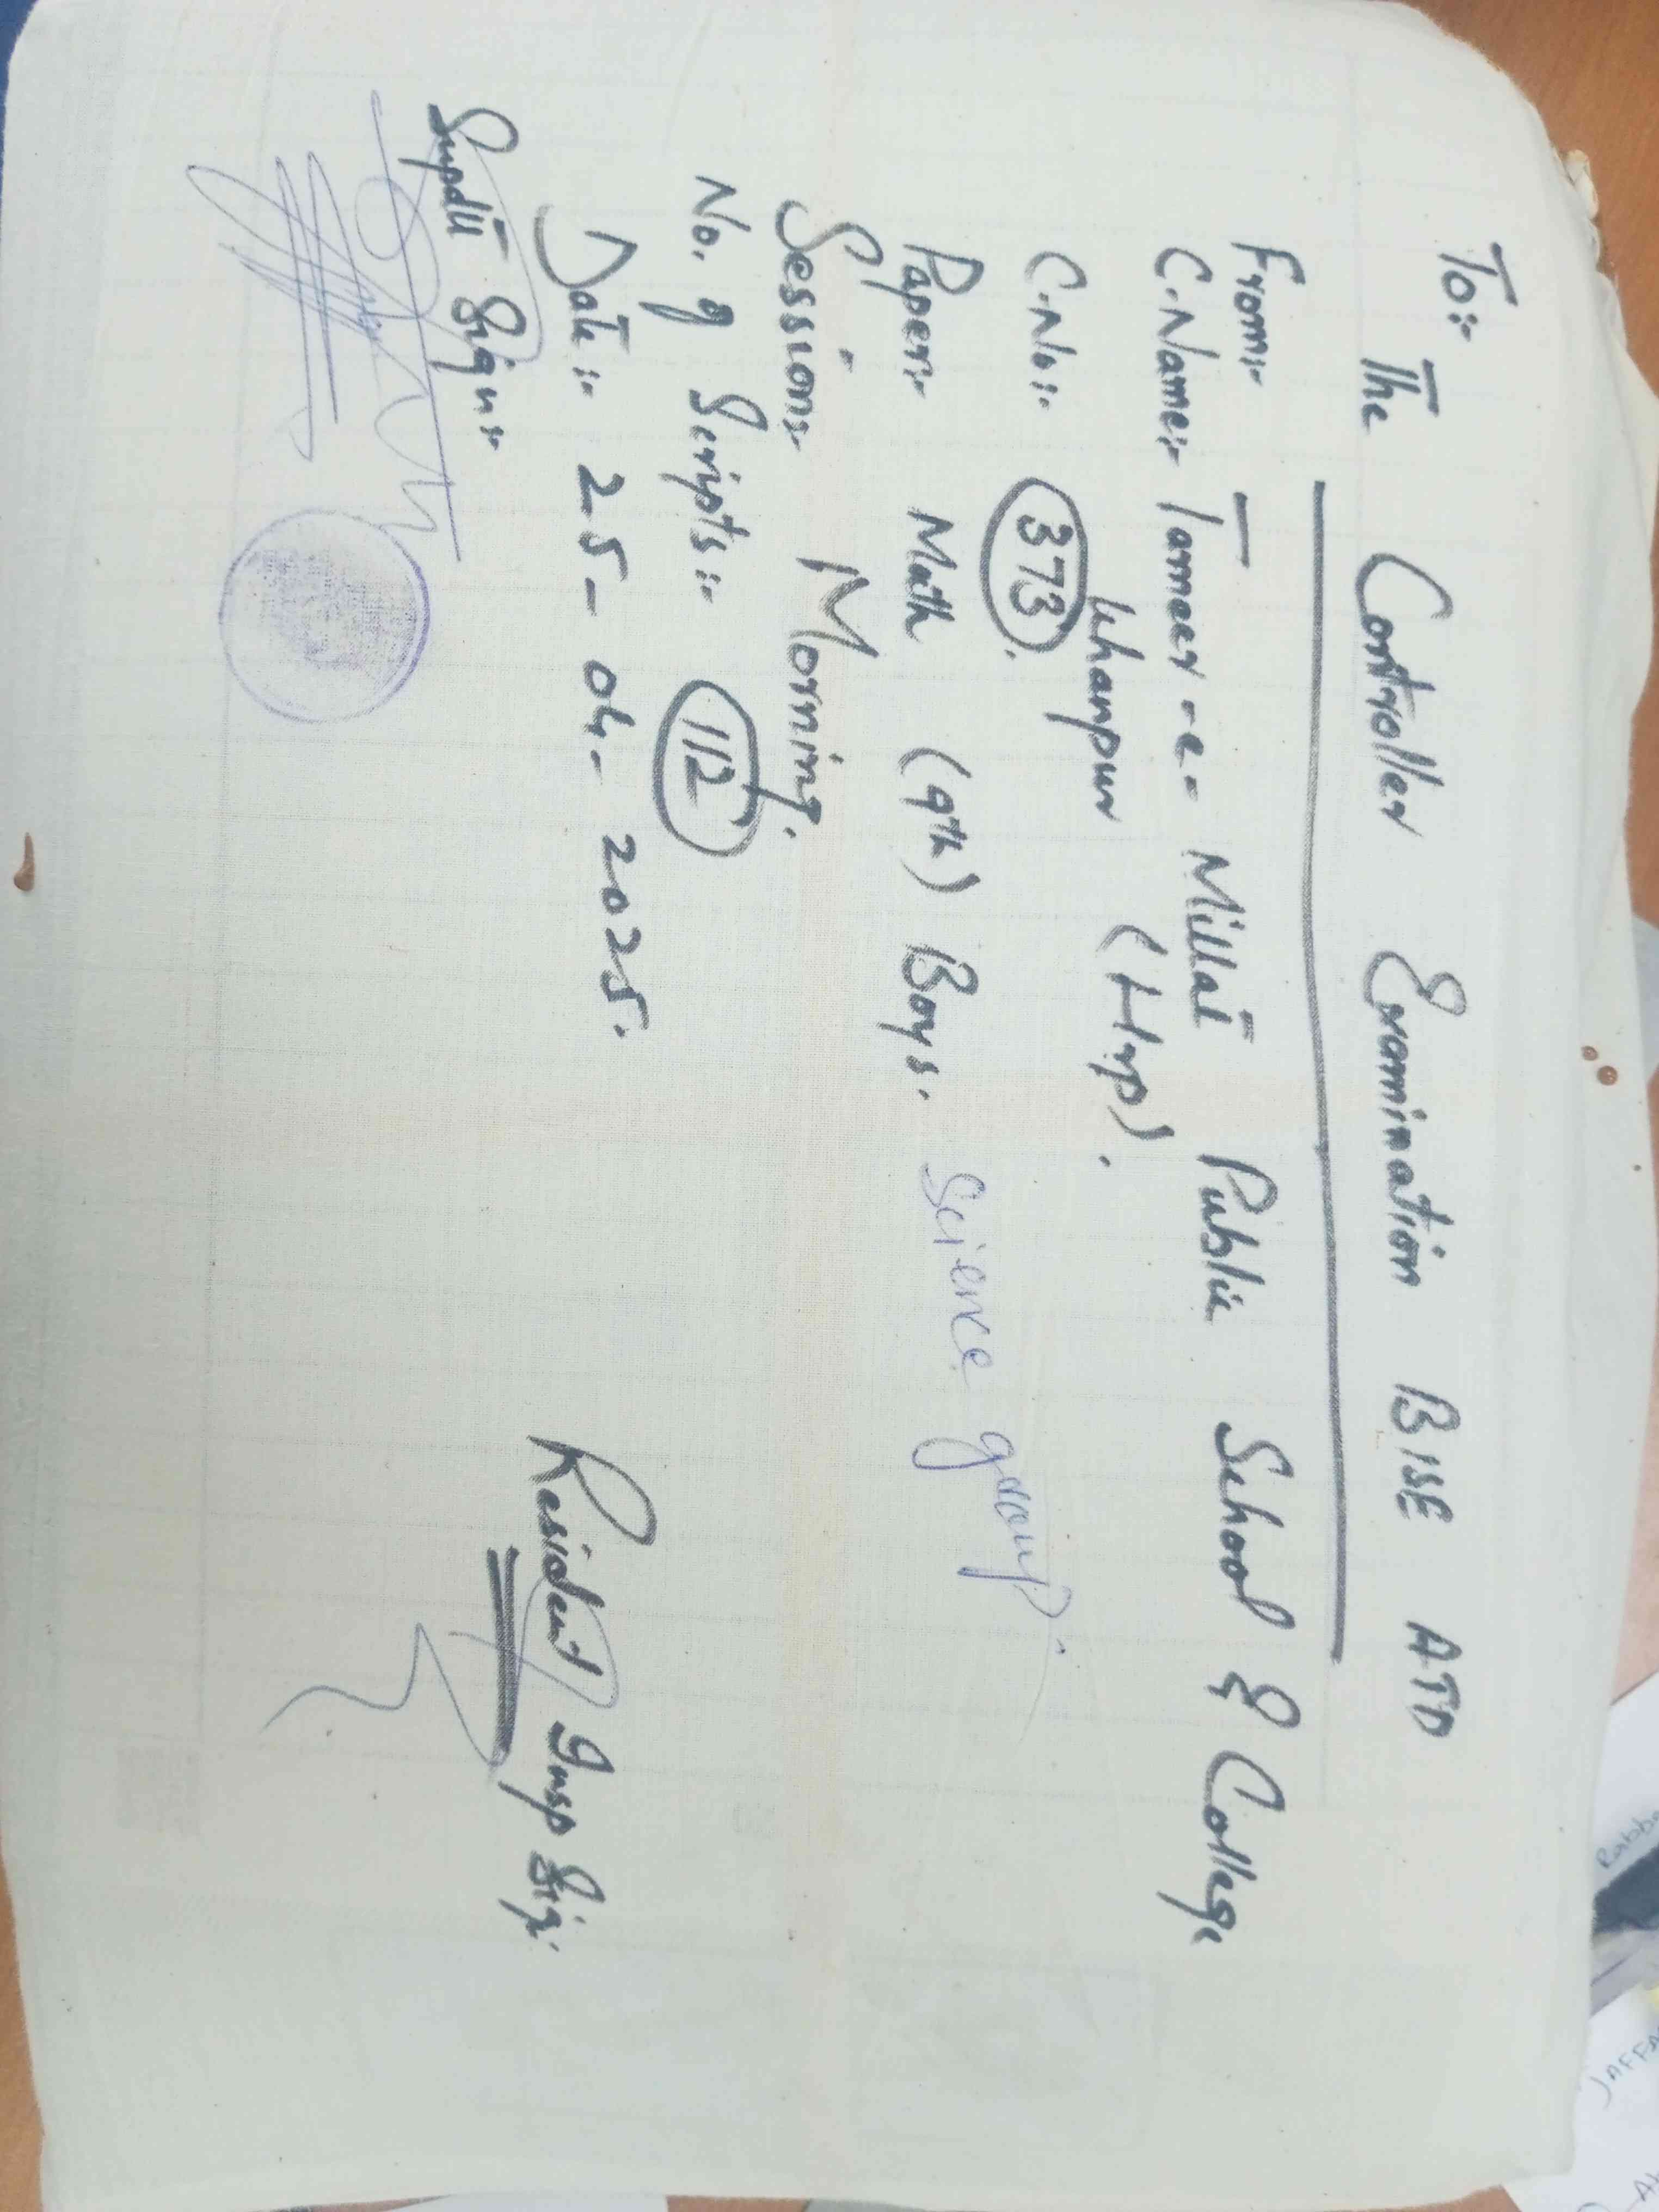 To:-
The Controller Examination BISE ATD
From:-
C.Name:- Tameer-e-Millat Public School & College
Khanpur (Hrp).
C.No:- 373.
Paper:- Math (9th) Boys. Science group.
Session:- Morning.
No. of Scripts:- 112
Date:- 25-04-2025.
Supdtt Sign:-
Resident Insp Sig: